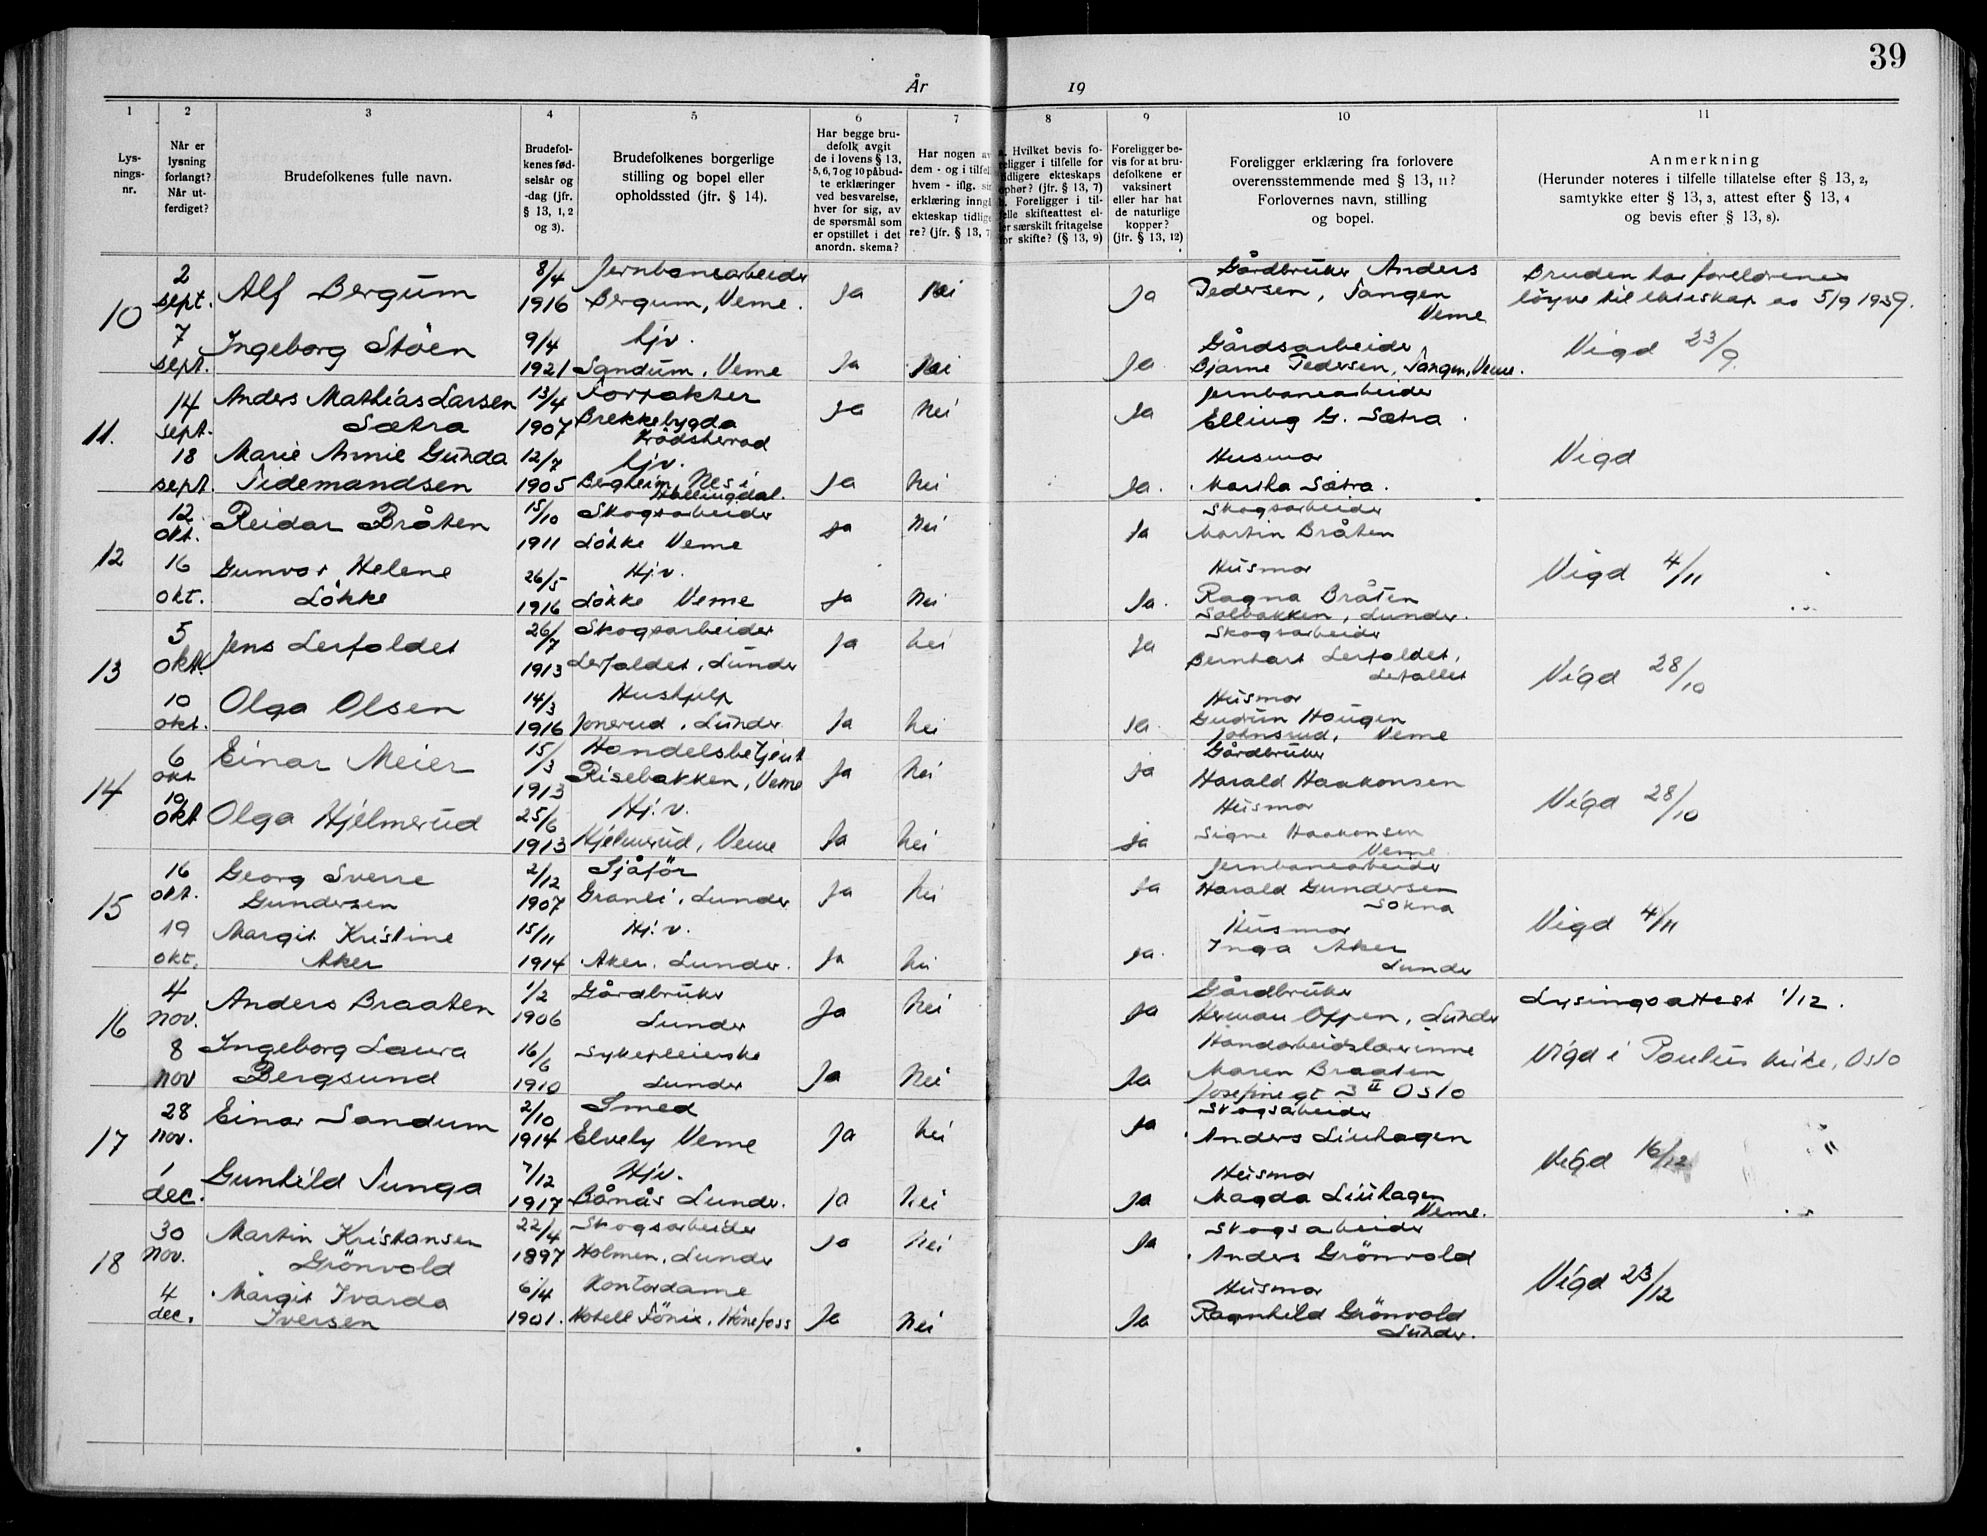 39
År 19
1 2 3 4 5 6 7 8 9 10 11
Lys-
nings-
nr.
Når er
lysning
forlangt?
Når ut-
ferdiget?
Brudefolkenes fulle navn.
Brudefol-
kenes fød-
selsår og
-dag (jfr.
§ 13, 1, 2
og 3).
Brudefolkenes borgerlige
stilling og bopel eller
opholdssted (jfr. § 14).
Har begge bru-
defolk avgit
de i lovens § 13,
5, 6, 7 og 10 påbud-
te erklæringer
ved besvarelse,
hver for sig, av
de spørsmål som
er opstillet i det
anordn. skema?
Har nogen av
dem - og i tilfel
hvem - iflg. sin
erklæring inngå
ekteskap tidlige
re? (jfr. § 13, 7)
a. Hvilket bevis fo-
religger i tilfelle for
tidligere ekteskaps
ophør? (jfr. § 13, 7)
b. Foreligger i til-
felle skifteattest el-
ler særskilt fritagelse
for skifte? (§ 13, 9)
Foreligger be-
vis for at bru-
defolkene er
vaksinert
eller har hat
de naturlige
kopper?
(jfr. § 13, 12)
Foreligger erklæring fra forlovere
overensstemmende med § 13, 11?
Forlovernes navn, stilling
og bopel.
Anmerkning
(Herunder noteres i tilfelle tillatelse efter § 13, 2,
samtykke efter § 13, 3, attest efter § 13, 4
og bevis efter § 13, 8).
2 8/4 Jernbanearbeider Gårdbruker Anders Bruden har foreldrenes
10 sept. Alf Bergum 1916 Bergum, Veme. Ja Nei Ja Pedersen, Tangen løyve til ekteskap av 5/9 1939.
Veme
7 Ingeborg Støen 9/4 Hjv. Gårdsarbeider Vigd 23/9
sept. 1921 Sandum, Veme Ja Nei Ja Bjarne Pedersen, Tangen, Veme.
14 Anders Mathias Larsen 13/4 Forpakter Ja Nei Ja Jernbanearbeider
11. sept. Sætra 1907 Brekkebygda Elling G. Sætra.
Krødsherad
18 Marie Annie Gunda 12/7 Hjv. Husmor Vigd
sept. Tidemandsen 1905 Bergheim, Nes i Ja Nei Ja. Martha Sætra.
Hallingdal.
12 Reidar Bråten 15/10 Skogsarbeider Ja Nei Ja Skogsarbeider
okt. 1911 Løkke Veme Martin Bråten
12 16 Gunvor Helene 26/5 Hj.v. Husmor Vigd 4/11
okt. Løkke 1916 Løkke Veme Ja Nei Ja. Ragna Bråten
Solbakken, Lunder.
5 Jens Lerfaldet 26/7 Skogsarbeider Ja Nei Ja Skogsarbeider
13 okt. 1913 Lerfaldet, Lunder Bernhart Lerfaldet, Vigd 28/10
Lerfallet
10 Olga Olsen 14/3 Hushjelp Husmor
okt. 1916 Jonsrud, Lunder. Ja Nei Ja. Gudrun Haugen
Johnsrud, Veme
6 Einar Meier 15/3 Handelsbetjent Gårdbruker
14 okt 1913 Risebakken, Veme Ja Nei Ja Harald Haakonsen
10 Olga Hjelmerud 25/6 Hj.v. Husmor Vigd 28/10
okt 1913 Hjelmerud, Veme Ja Nei Ja Signe Haakonsen
Veme
16 Georg Sverre 2/12 Sjåfør Jernbanearbeider
okt. Gundersen 1907 Granli, Lunder Ja Nei Ja Harald Gundersen
Sokna
15 19 Margit Kristine 15/11 Hj.v. Husmor Vigd 4/11
okt. Aker 1914 Aker, Lunder. Ja Nei Ja. Inga Aker
Lunder
4 Anders Braaten 1/2 Gårdbruker Gårdbruker Lysingsattest 1/12.
16 nov. 1906 Lunder Ja Nei Ja Herman Oppen, Lunder
8 Ingeborg Laura 16/6 Sykepleierske Handarbeidslærerinne Vigd i Paulus kirke, Oslo
nov Bergsund 1910 Lunder Ja Nei Ja Maren Braaten
Josefinegt 3 II Oslo
28 Einar Sandum 2/10 Smed Skogsarbeider
17 nov. 1914 Elvely Veme Ja Nei Ja Anders Liuhagen
1 Gunhild Lunga 7/12 Hjv. Husmor Vigd 16/12
dec. 1917 Bårnås Lunder. Ja Nei Ja Magda Liuhagen
Veme.
30 Martin Kristansen 22/4 Skogsarbeider Skogsarbeider
18 nov. Grönvold 1897 Holmen, Lunder Ja Nei Ja Anders Grönvold
4 Margit Ivarda 6/4 Kontordame Husmor Vigd 23/12
dec. Iversen 1901. Hotell Fønix, Hønefoss Ja Nei Ja Ragnhild Grönvold
Lunder.